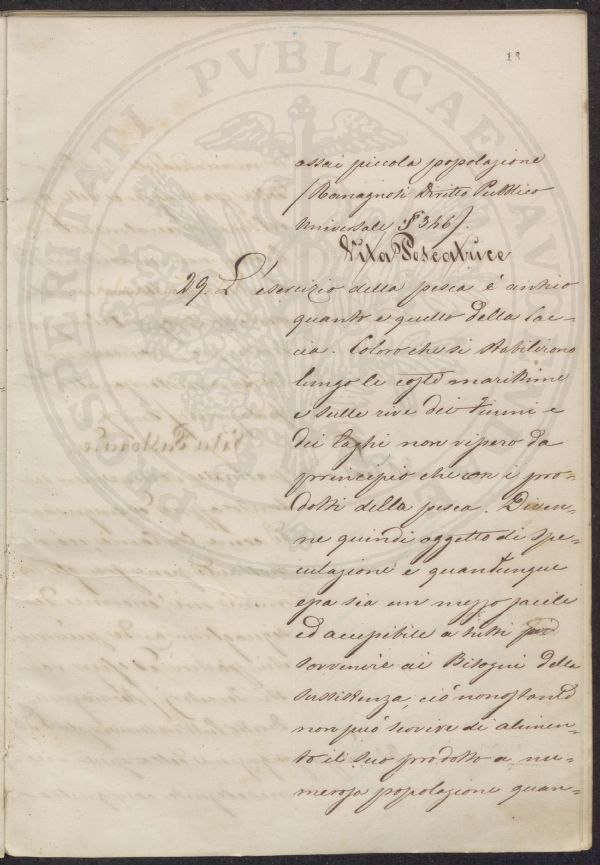 18
assai piccola popolazione
(Romagnosi Diritto Pubblico
Universale § 346).
Vita Pescatrice
29. L'esercizio della pesca è antico
quanto e quello della Cac-
cia. Coloro che si stabilirono
lungo le coste marittime
e sulle rive dei Fiumi e
dei Laghi non vissero da
principio che con i pro-
dotti della pesca. Diven-
ne quindi oggetto di spe-
culazione e quantunque
essa sia un mezzo facile
ed accessibile a tutti per
sovvenire ai Bisogni della
sussistenza, ciò nonostante
non può servire di alimen-
to il suo prodotto a nu-
merosa popolazione quan-
PROSPERITATI PVBLICAE AVGENDAE
Vita Pastorale